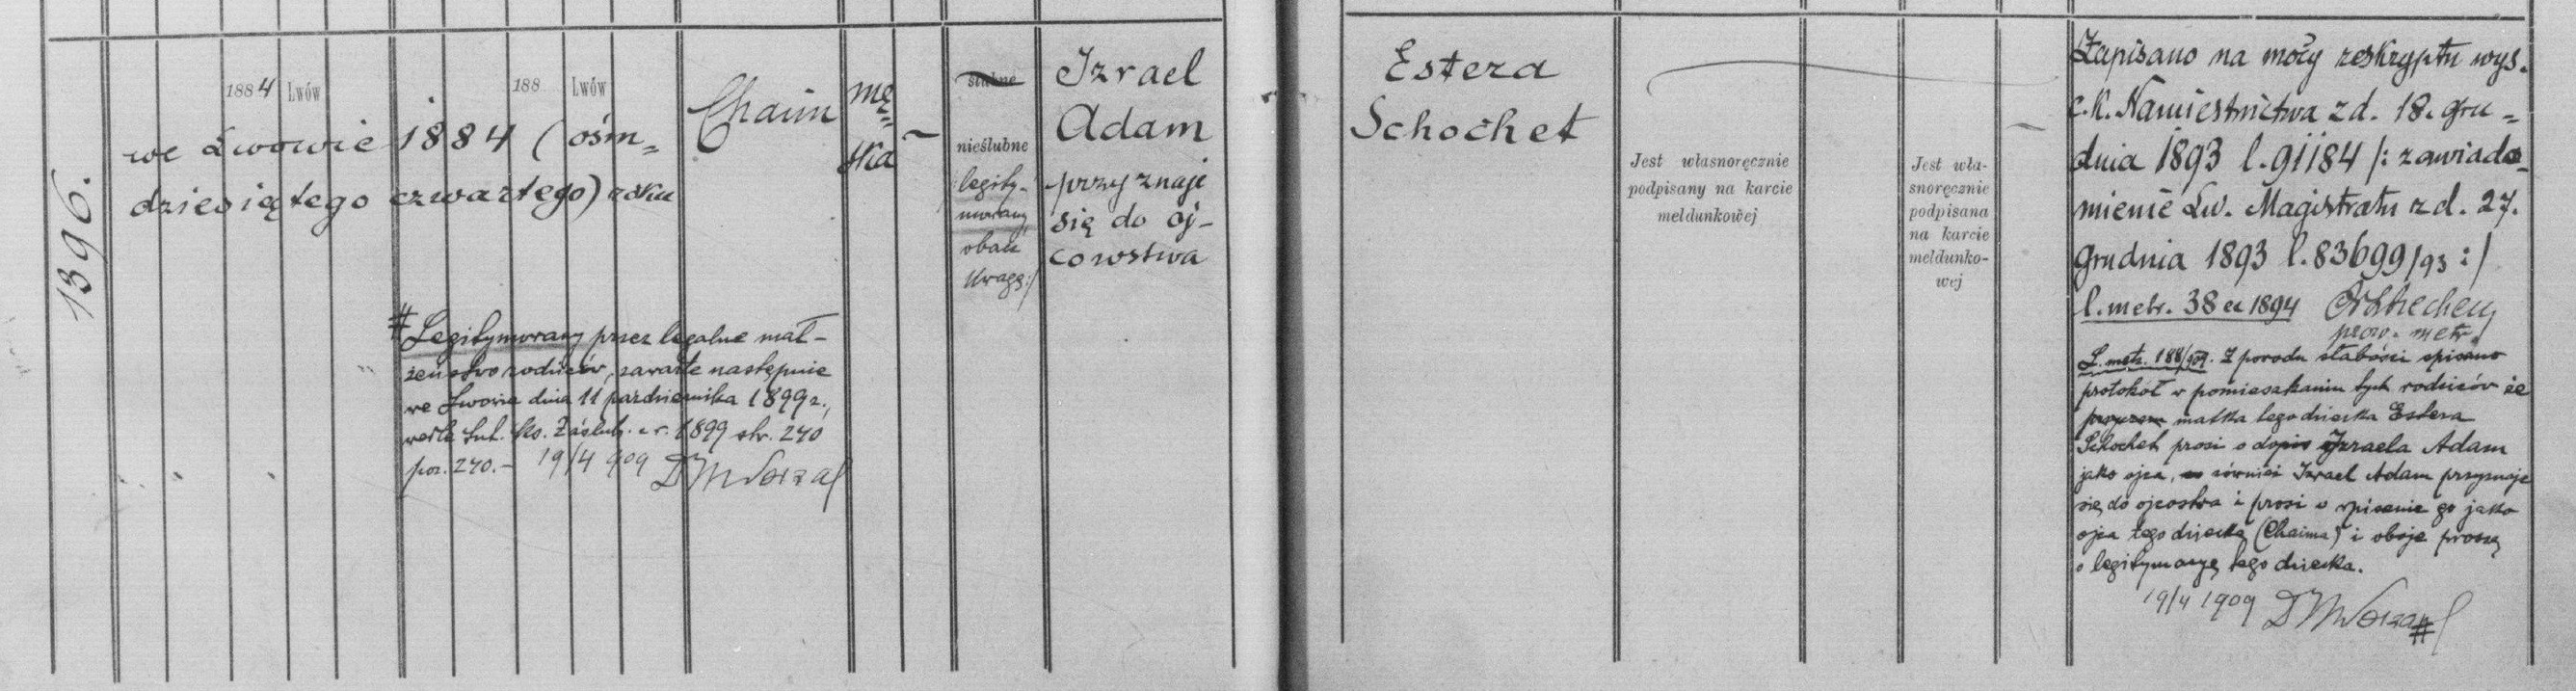 1396.
1884 Lwów
188 Lwów
we Lwowie 1884 (ośm=
dziesiątego czwartego) roku
Chaim
mę=
ska
ślubne
nieślubne
legity-
mowany
obacz
uwagę:/
Izrael
Adam
przyznaje
się do oj-
cowstwa
# Legitymowany przez legalne mał-
żeństwo rodziców, zawarte następnie
we Lwowie dnia 11 października 1899 r.,
wedle tut. ks. zaślub. z r. 1899 str. 270
poz. 270.- 19/4 909
Estera
Schochet
Jest własnoręcznie
podpisany na karcie
meldunkowej
Jest wła-
snoręcznie
podpisana
na karcie
meldunko-
wej
Zapisano na mocy reskryptu wys.
c.k. Namiestnictwa z d. 18. gru=
dnia 1893 l. 91184 /: zawiado-
mienie Lw. Magistratu z d. 27.
grudnia 1893 l. 83699/93 :/
l. metr. 38 ex 1894
prow. metr.
L. metr. 188/909. Z powodu słabości spisano
protokół w pomieszkaniu tych rodziców że
matka tego dziecka Estera
Schochet prosi o dopis Izraela Adam
jako ojca, również Izrael Adam przyznaje
się do ojcostwa i prosi o wpisanie go jako
ojca tego dziecka (Chaima) i oboje proszą
o legitymację tego dziecka.
19/4 1909
#